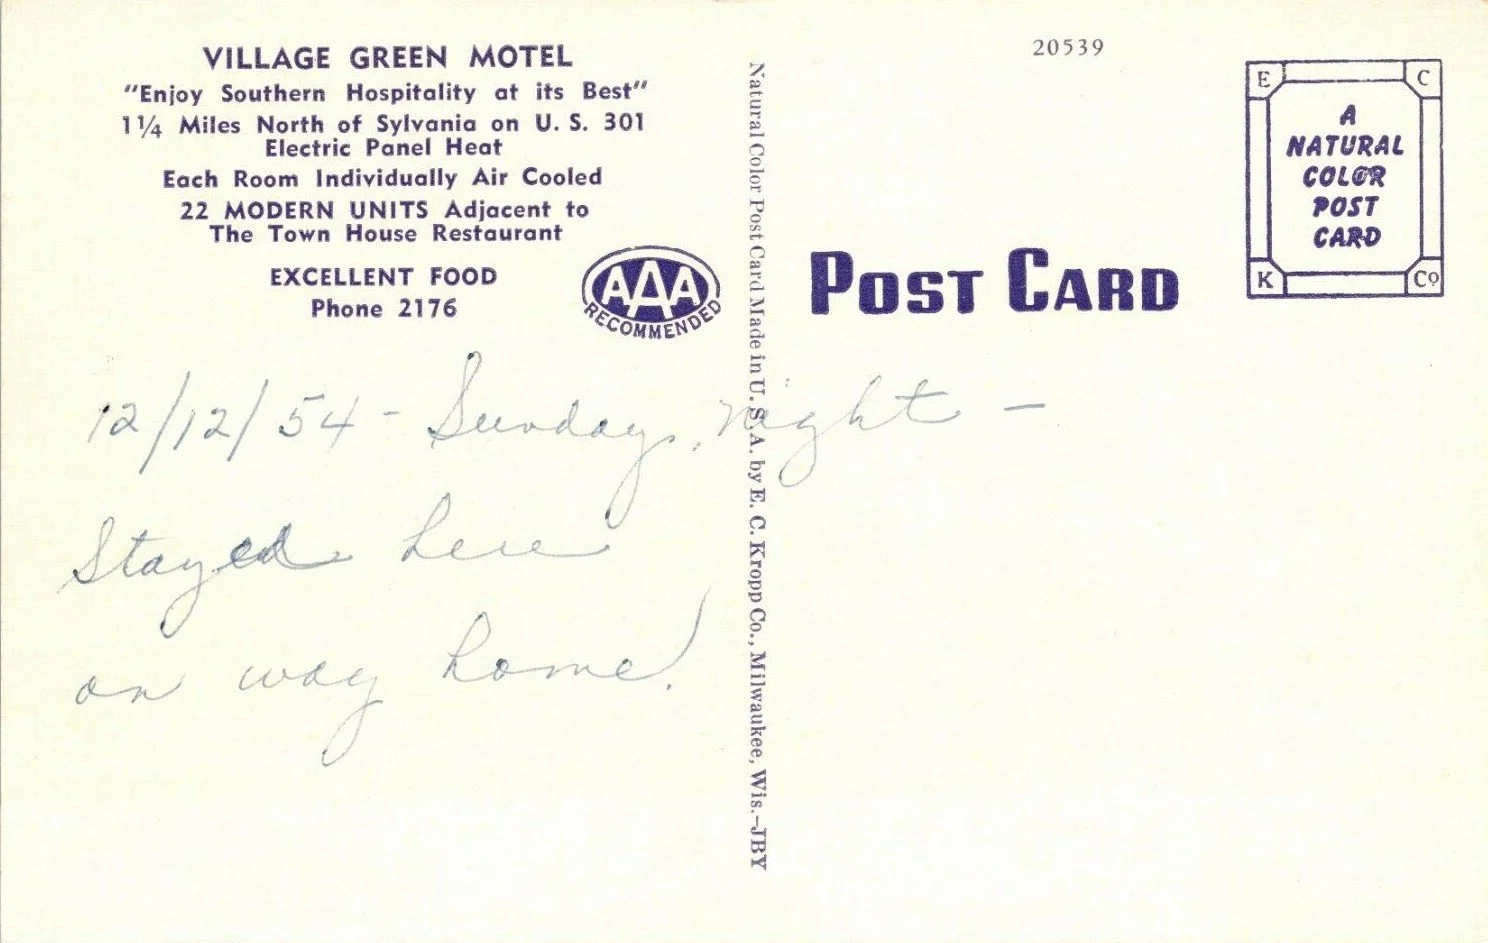 VILLAGE GREEN MOTEL
"Enjoy Southern Hospitality at its Best"
1¼ Miles North of Sylvania on U. S. 301
Electric Panel Heat
Each Room Individually Air Cooled
22 MODERN UNITS Adjacent to
The Town House Restaurant
EXCELLENT FOOD
Phone 2176
AAA
RECOMMENDED
12/12/54 - Sunday, night -
Stayed here
on way home!
Natural Color Post Card Made in U. S. A. by E. C. Kropp Co., Milwaukee, Wis.-JBY
20539
POST CARD
E C
A
NATURAL
COLOR
POST
CARD
K Co